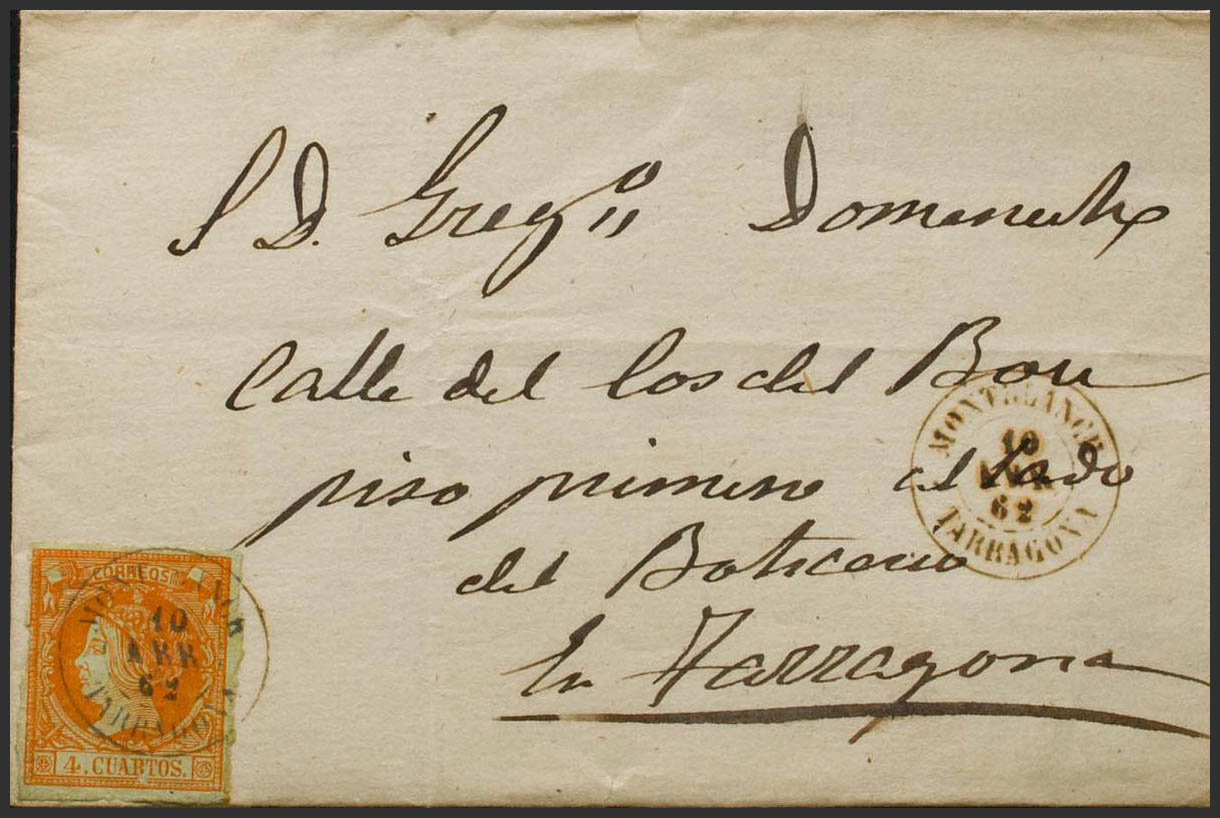 S D. Greg.º Domenech
Calle del Cos del Bou
piso primero al Lado
del Boticario
En Tarragona
MONTBLANCH
10
ABR
62
TARRAGONA
CORREOS
MONTBLANCH
10
ABR
62
TARRAGONA
4. CUARTOS.